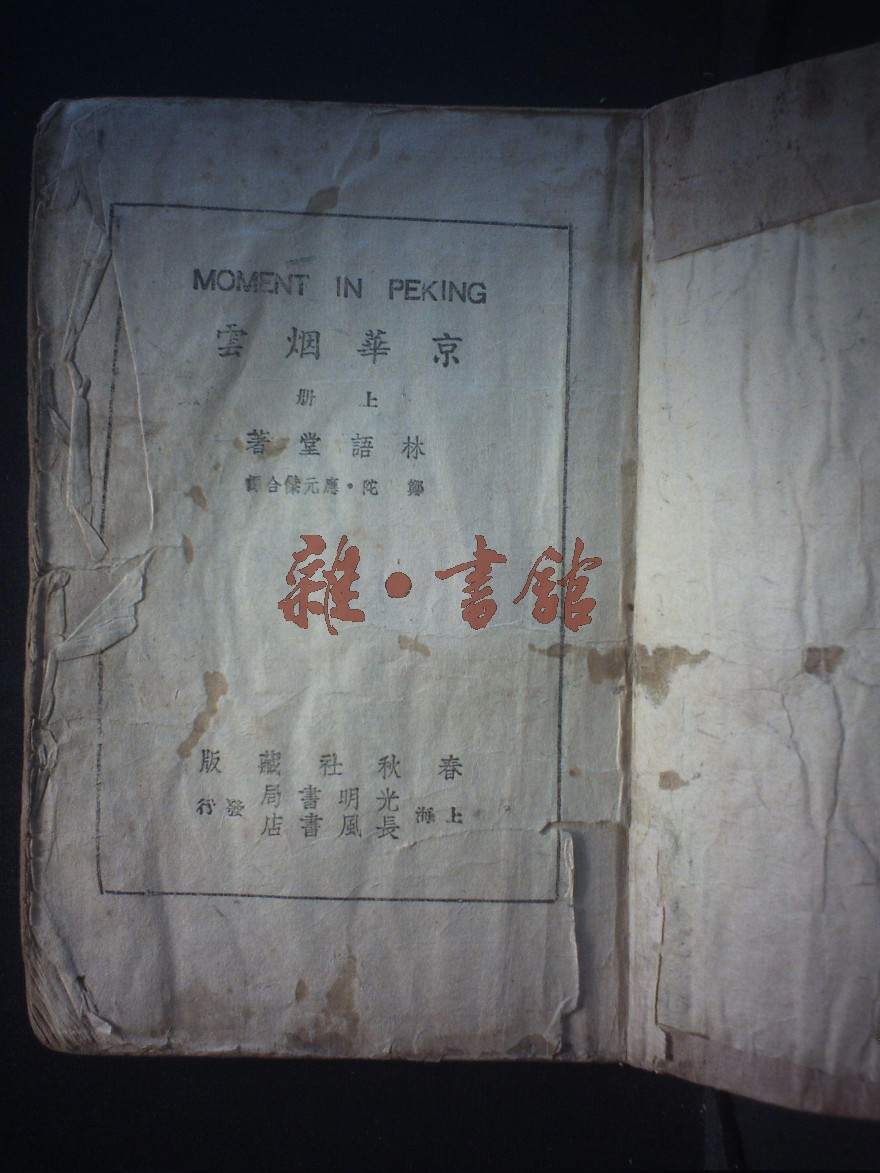 MOMENT IN PEKING
京華烟雲
上册
林語堂著
鄭陀·應元傑合譯
雜·書館
春秋社藏版
上海 光明書局 發行
長風書店